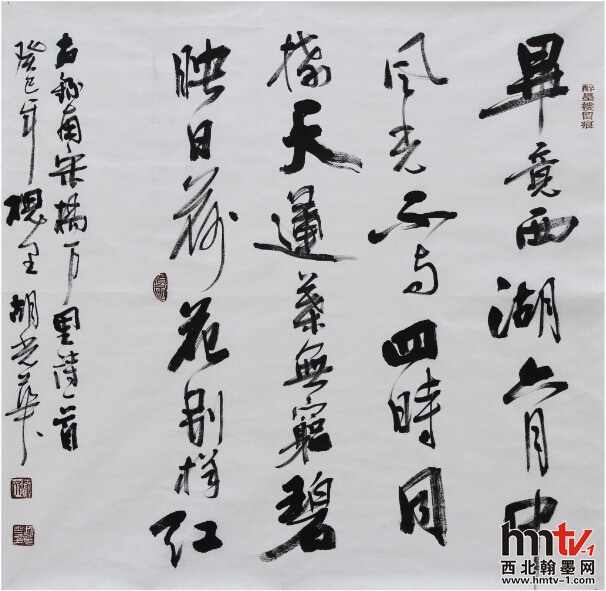 醉墨樓留痕
畢竟西湖六月中
风光不与四時同
接天蓮葉無窮碧
映日荷花别樣红
右錄南宋楊万里詩一首
癸巳年槐里胡光華
hmtv-1
西北翰墨网
www.hmtv-1.com